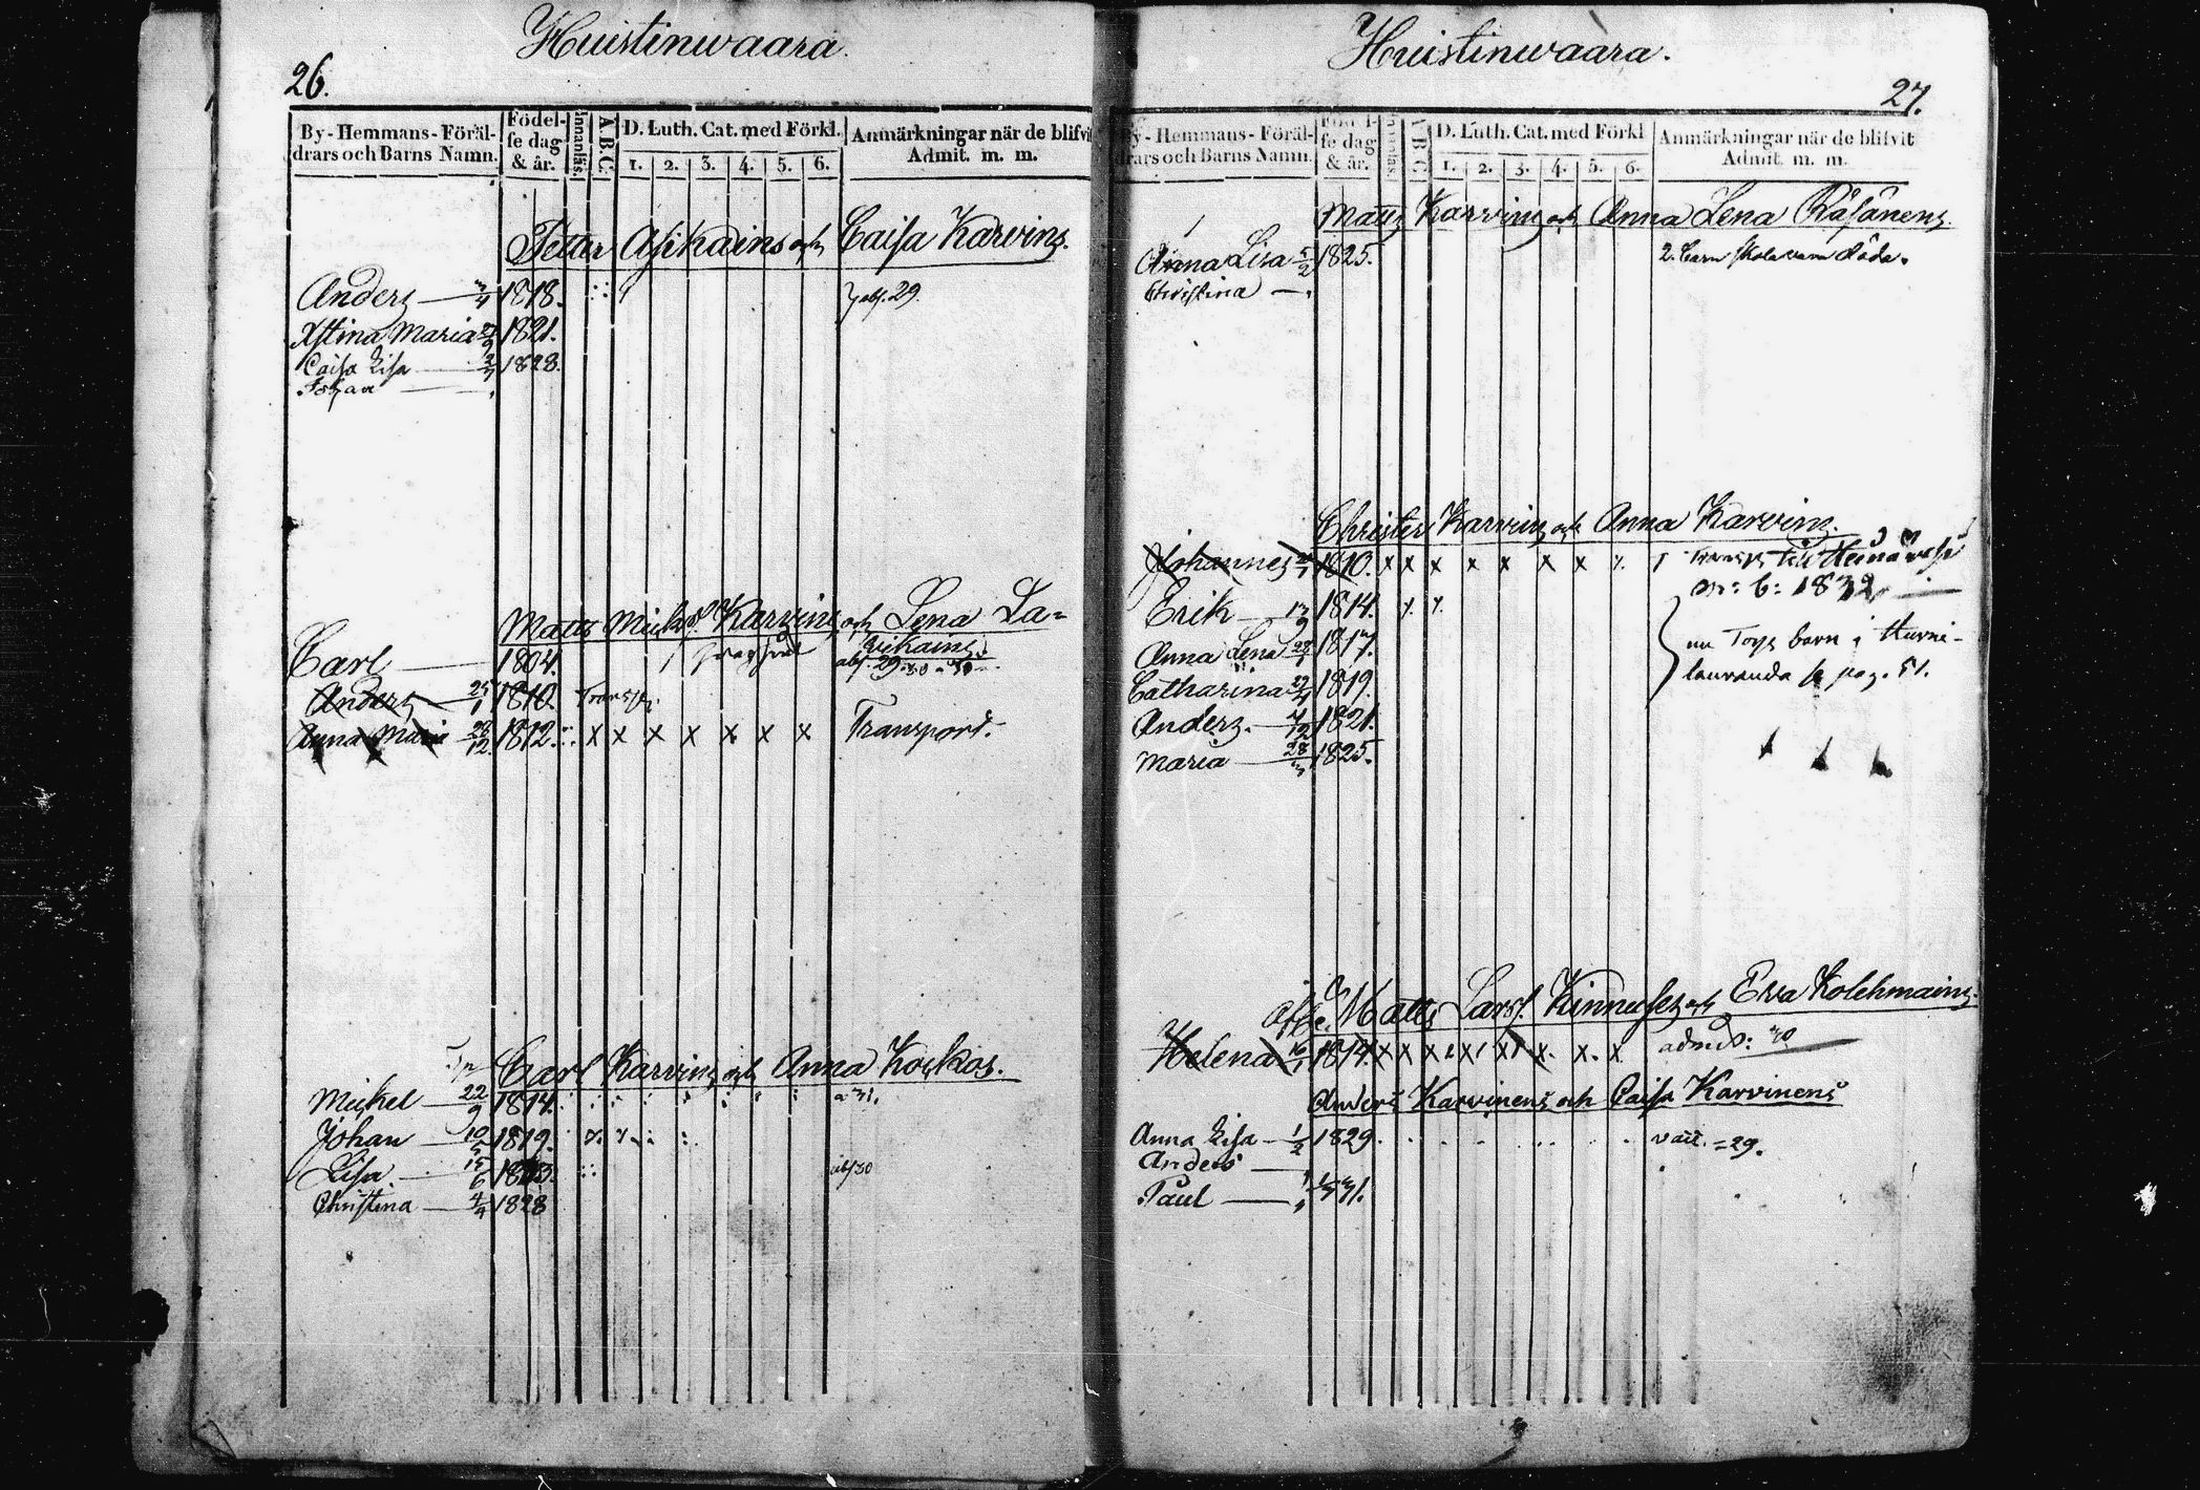 26.
Huistinwaara.
By-Hemmans-Föräl-
drars och Barns Namn.
Födel-
se dag
& år.
Innanläs.
A.B.C.
D. Luth. Cat. med Förkl.
1. 2. 3. 4. 5. 6.
Anmärkningar när de blifvit
Admit. m. m.
Petter Asikains och Caisa Karvins.
Anders 1818. abs. 29.
Xstina Maria 1821.
Caisa Lisa 2/7 1828.
Johan
Matts Karvins och Lena La=
Carl 1804. abs. 29. 30
Anders 25/1 1810. Transp.
Anna Maria 28/12 1812. x x x x x x x Transport.
Carl Karvins och Anna Kockos.
Mickel 22/9 1814.
Johan 10/5 1819.
Lisa. 15/6 abs 30
Christina 4/4 1828
27.
Huistinwaara.
By-Hemmans-Föräl-
drars och Barns Namn.
Födel-
se dag
& år.
Innanläs.
A B C
D. Luth. Cat. med Förkl
1. 2. 3. 4. 5. 6.
Anmärkningar när de blifvit
Admit. m. m.
Matts Karvins och Anna Lena Räsänens.
Anna Lisa 5/2 1825. 2. barn skola vara döda.
Christina
Christer Karvins och Anna Karvins.
Johannes 1810. x x x x x x x x Transp. till Heinävesi
1832
Erik 1814.
Anna Lena 1817. nu Torp barn i Hurni-
Catharina 1819. lauranda se pag. 51.
Anders. 1821.
Maria 28/3 1825.
Matts Larss. Kinnuses och Eva Kolehmains.
Helena 16/1 1814. x x x x x x x x admit: 30
Anders Karvinens och Caisa Karvinens
Anna Lisa 1/2 1829.
Anders
Paul